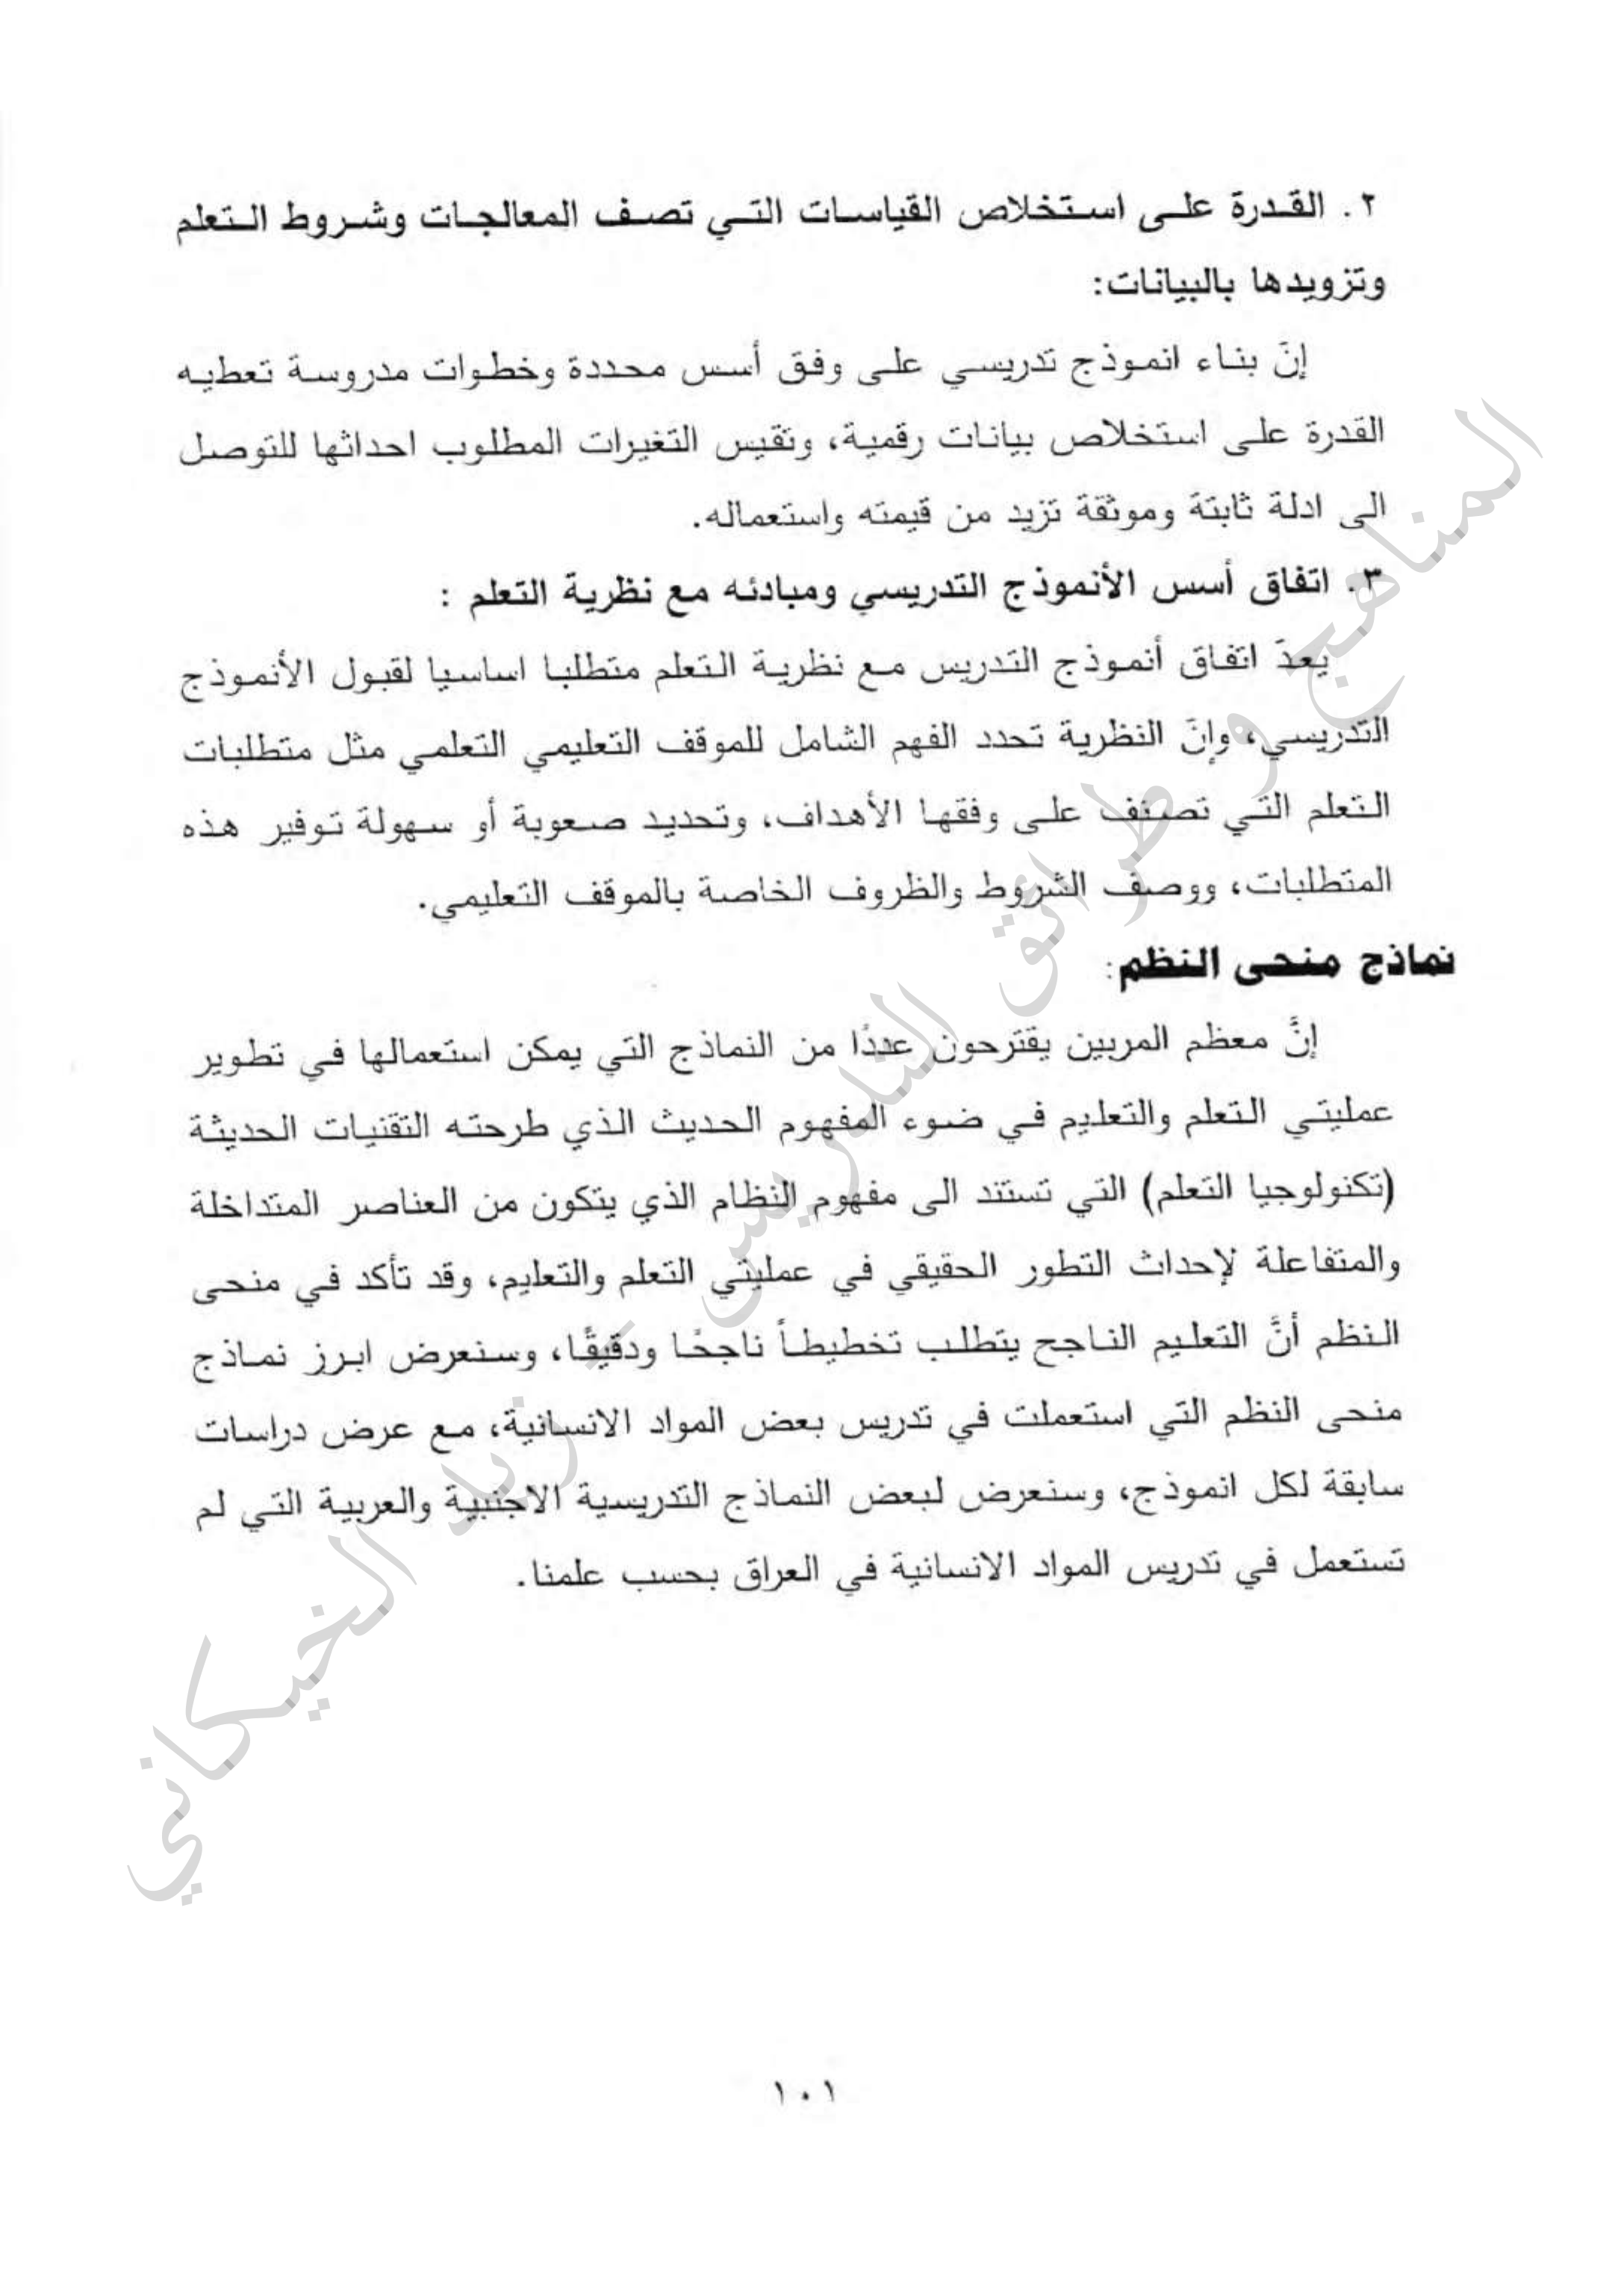 ٢. القدرة على استخلاص القياسات التي تصف المعالجات وشروط التعلم
وتزويدها بالبيانات:
إنّ بناء انموذج تدريسي على وفق أسس محددة وخطوات مدروسة تعطيه
القدرة على استخلاص بيانات رقمية، وتقيس التغيرات المطلوب احداثها للتوصل
الى ادلة ثابتة وموثقة تزيد من قيمته واستعماله.
٣. اتفاق أسس الأنموذج التدريسي ومبادئه مع نظرية التعلم :
يعدّ اتفاق أنموذج التدريس مع نظرية التعلم متطلبا اساسيا لقبول الأنموذج
التدريسي، وإنّ النظرية تحدد الفهم الشامل للموقف التعليمي التعلمي مثل متطلبات
التعلم التي تصنف على وفقها الأهداف، وتحديد صعوبة أو سهولة توفير هذه
المتطلبات، ووصف الشروط والظروف الخاصة بالموقف التعليمي.
نماذج منحى النظم:
إنَّ معظم المربين يقترحون عددًا من النماذج التي يمكن استعمالها في تطوير
عمليتي التعلم والتعليم في ضوء المفهوم الحديث الذي طرحته التقنيات الحديثة
(تكنولوجيا التعلم) التي تستند الى مفهوم النظام الذي يتكون من العناصر المتداخلة
والمتفاعلة لإحداث التطور الحقيقي في عمليتي التعلم والتعليم، وقد تأكد في منحى
النظم أنَّ التعليم الناجح يتطلب تخطيطاً ناجحًا ودقيقًا، وسنعرض ابرز نماذج
منحى النظم التي استعملت في تدريس بعض المواد الانسانية، مع عرض دراسات
سابقة لكل انموذج، وسنعرض لبعض النماذج التدريسية الاجنبية والعربية التي لم
تستعمل في تدريس المواد الانسانية في العراق بحسب علمنا.
١٠١
المناهج و طرائق التدريس - زيد الخيكاني